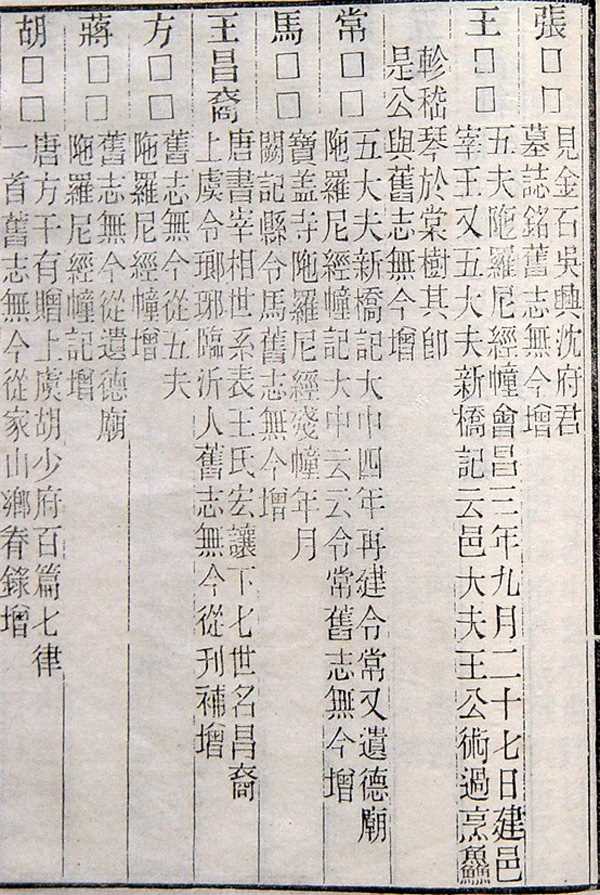 張□□
見金石吳興沈府君
墓誌銘舊志無今增
王□□
五夫陁羅尼經幢會昌三年九月二十七日建邑
宰王又五大夫新橋記云邑大夫王公術過烹鱻
軫嵇琴於棠樹其卽
是公與舊志無今增
常□□
五大夫新橋記大中四年再建令常又遺德廟
陁羅尼經幢記大中云云令常舊志無今增
馬□□
寶盖寺陁羅尼經殘幢年月
闕記縣令馬舊志無今增
王昌裔
唐書宰相世系表王氏宏讓下七世名昌裔
上虞令瑯琊臨沂人舊志無今從刊補增
方□□
舊志無今從五夫
陁羅尼經幢增
蔣□□
舊志無今從遺德廟
陁羅尼經幢記增
胡□□
唐方干有贈上虞胡少府百篇七律
一首舊志無今從家山鄉眷錄增